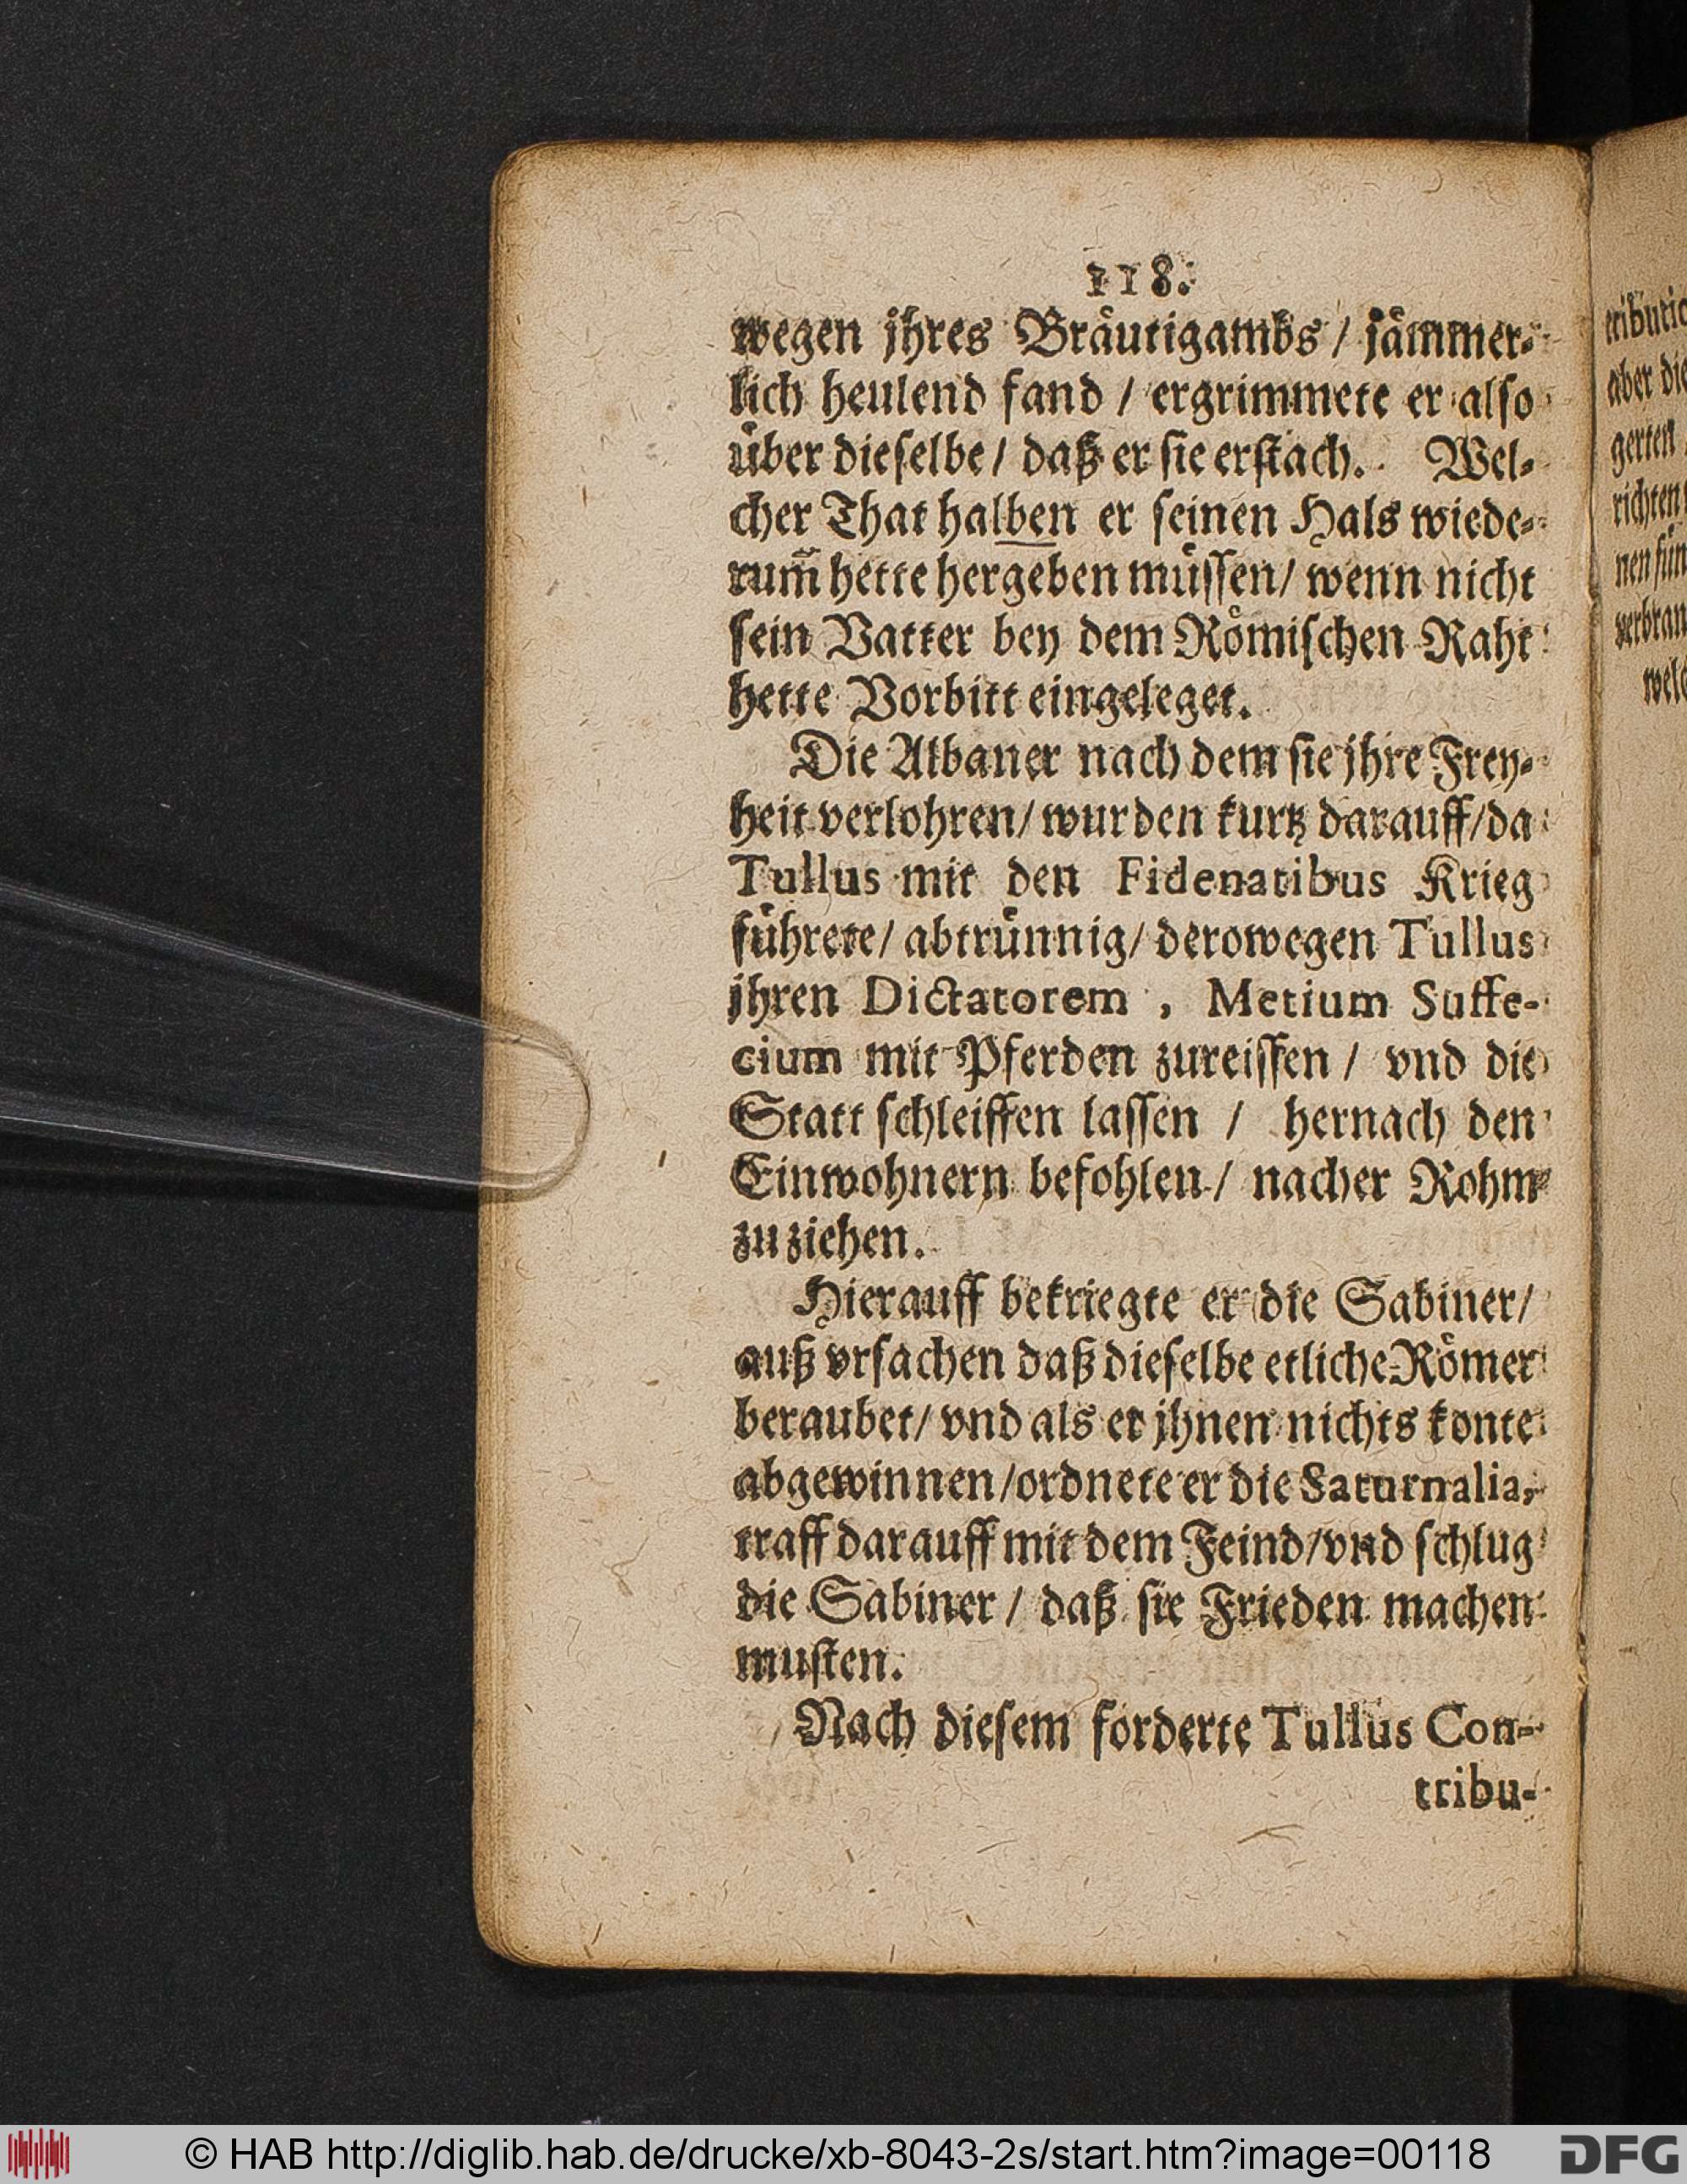 118.
wegen jhres Bräutigambs / jämmer-
lich heulend fand / ergrimmete er also
über dieselbe / daß er sie erstach. Wel-
cher That halben er seinen Hals wiede-
rum̃ hette hergeben müssen / wenn nicht
sein Vatter bey dem Römischen Raht
hette Vorbitt eingeleget.
Die Albaner nach dem sie jhre Frey-
heit verlohren / wurden kurtz darauff / da
Tullus mit den Fidenatibus Krieg
führete / abtrünnig / derowegen Tullus
jhren Dictatorem , Metium Suffe-
cium mit Pferden zureissen / vnd die
Statt schleiffen lassen / hernach den
Einwohnern befohlen / nacher Rohm
zu ziehen.
Hierauff bekriegte er die Sabiner /
auß vrsachen daß dieselbe etliche Römer
beraubet / vnd als er jhnen nichts konte
abgewinnen / ordnete er die Saturnalia,
traff darauff mit dem Feind / vnd schlug
die Sabiner / daß sie Frieden machen
musten.
Nach diesem forderte Tullus Con-
tribu-
aber die
gerten
richten
verbran
© HAB http://diglib.hab.de/drucke/xb-8043-2s/start.htm?image=00118
DFG